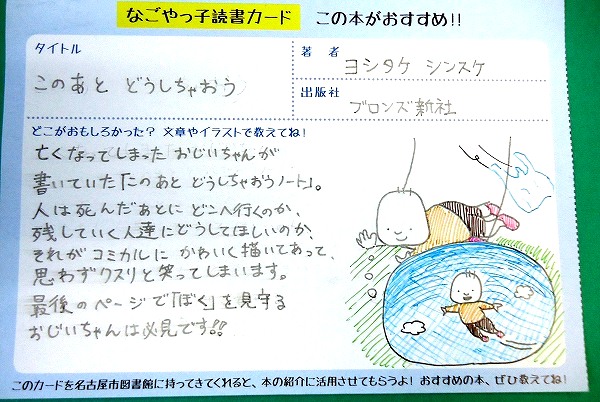 なごやっ子読書カード この本がおすすめ!!
タイトル
このあと どうしちゃおう
著者
ヨシタケ シンスケ
出版社
ブロンズ新社
どこがおもしろかった？ 文章やイラストで教えてね！
亡くなってしまった「おじいちゃんが
書いていた「このあと どうしちゃおうノート」。
人は死んだあとに どこへ行くのか、
残していく人達にどうしてほしいのか、
それがコミカルに かわいく描いてあって、
思わずクスリと笑ってしまいます。
最後のページで「ぼく」を見守る
おじいちゃんは必見です!!
このカードを名古屋市図書館に持ってきてくれると、本の紹介に活用させてもらうよ！おすすめの本、ぜひ教えてね！